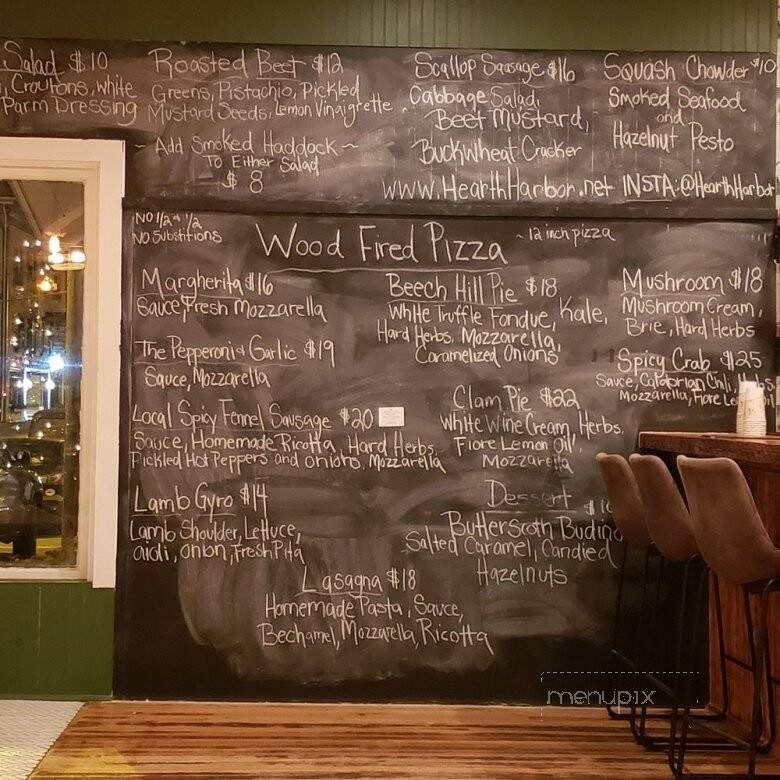 Salad $10
, Croutons, white
Parm Dressing
Roasted Beet $12
Greens, Pistachio, Pickled
Mustard Seeds, Lemon Vinaigrette
~ Add Smoked Haddock ~
To Either Salad
$8
Scallop Sausage $16
Cabbage Salad,
Beet Mustard,
Buckwheat Cracker
Squash Chowder $10
Smoked Seafood
and
Hazelnut Pesto
www.HearthHarbor.net INSTA:@HearthHarbor
No 1/2 & 1/2
No Substitions
Wood Fired Pizza
~ 12 inch pizza
Margherita $16
Sauce, Fresh Mozzarella
The Pepperoni & Garlic $19
Sauce, Mozzarella
Local Spicy Fennel Sausage $20
Sauce, Homemade Ricotta, Hard Herbs,
Pickled Hot Peppers and onions, Mozzarella
Lamb Gyro $14
Lamb Shoulder, Lettuce,
aioli, onion, Fresh Pita
Beech Hill Pie $18
White Truffle Fondue, Kale,
Hard Herbs, Mozzarella,
Caramelized Onions
Clam Pie $22
White Wine Cream, Herbs,
Fiore Lemon Oil,
Mozzarella
Mushroom $18
Mushroom Cream,
Brie, Hard Herbs
Spicy Crab $25
Sauce, Calabrian Chili, Herbs,
Mozzarella, Fiore Lemon Oil
Dessert
Butterscoth Buding
Salted Caramel, Candied
Hazelnuts
Lasagna $18
Homemade Pasta, Sauce,
Bechamel, Mozzarella, Ricotta
menupix